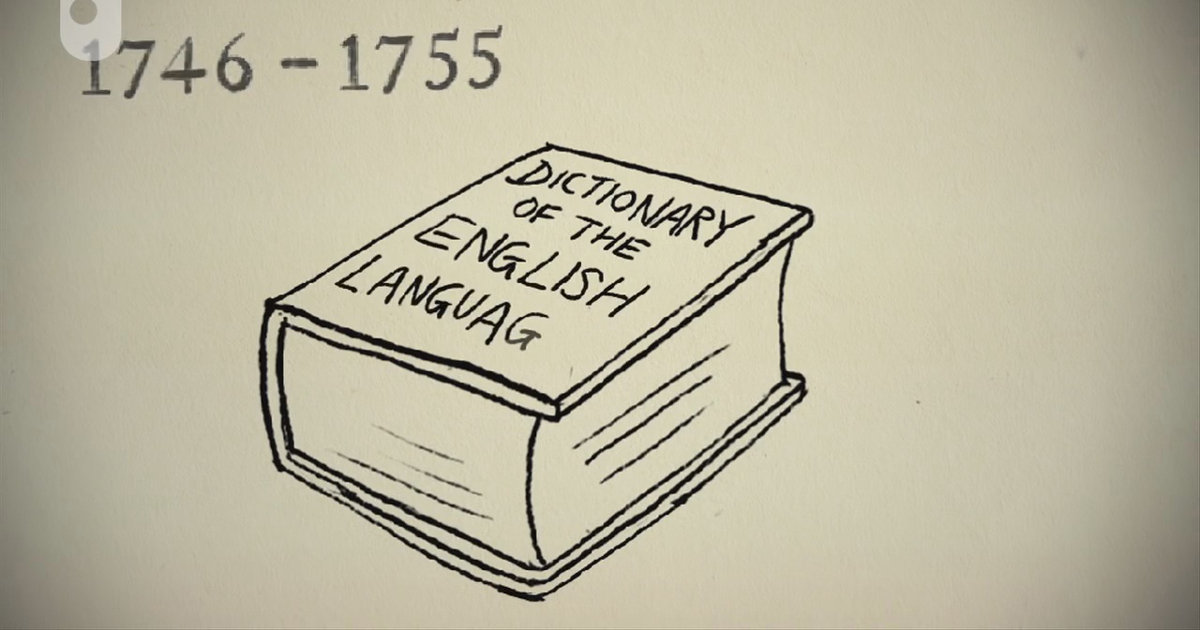 1746 - 1755
DICTIONARY
OF THE
ENGLISH
LANGUAG